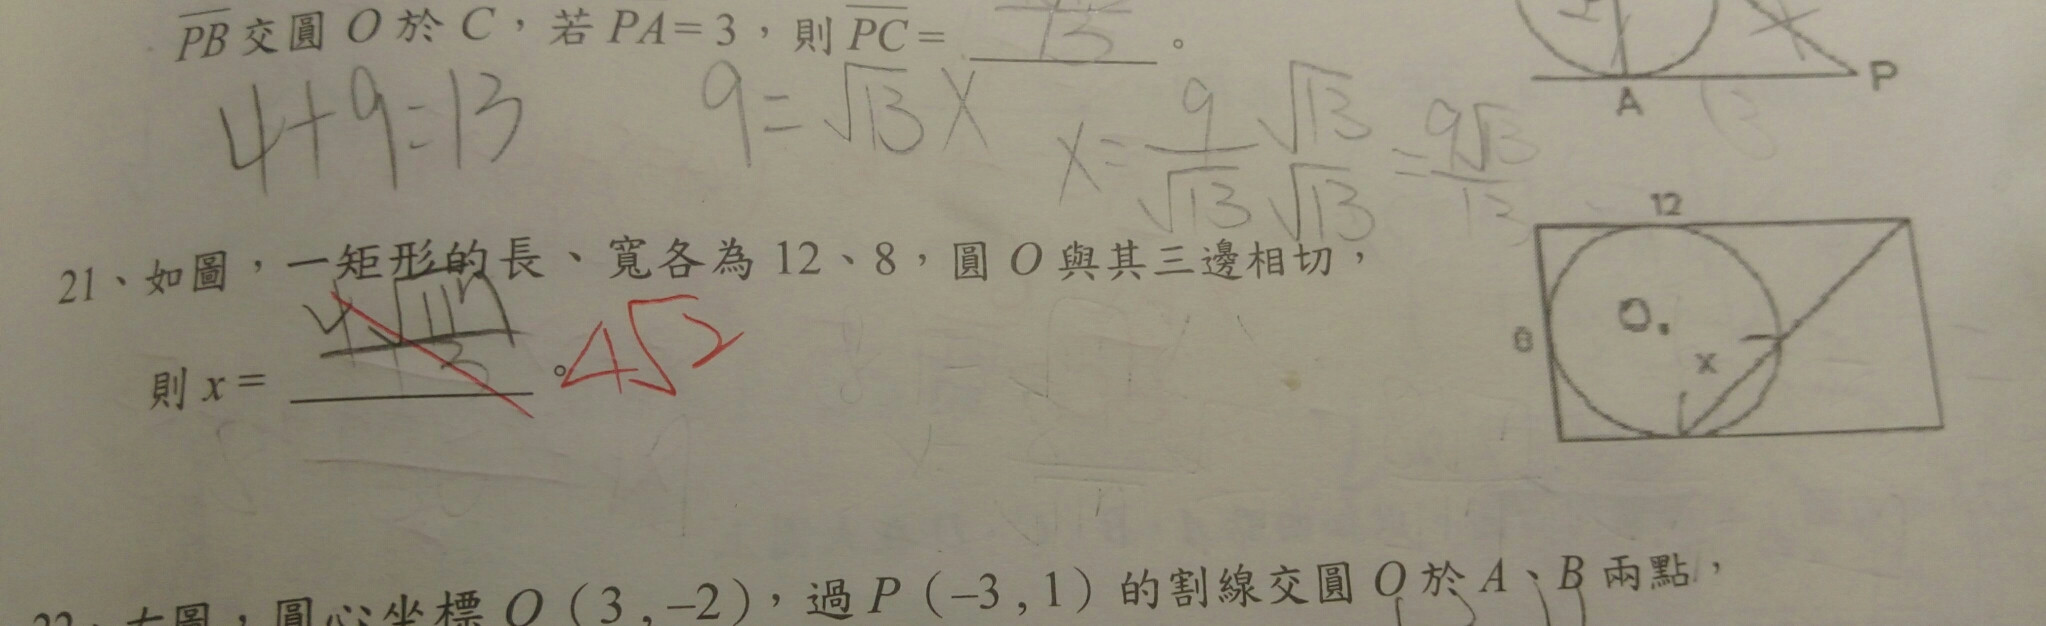 PB交圓 O 於 C，若 PA=3，則 PC= 。
4+9=13 9=√13X X=9/√13 √13/√13 =9√13/13
A P
12
21、如圖，一矩形的長、寬各為 12、8，圓 O 與其三邊相切，
則 x= 。4√2
8 O. x
圓心坐標 O（3 , –2），過 P（–3 , 1）的割線交圓 O 於 A、B 兩點，